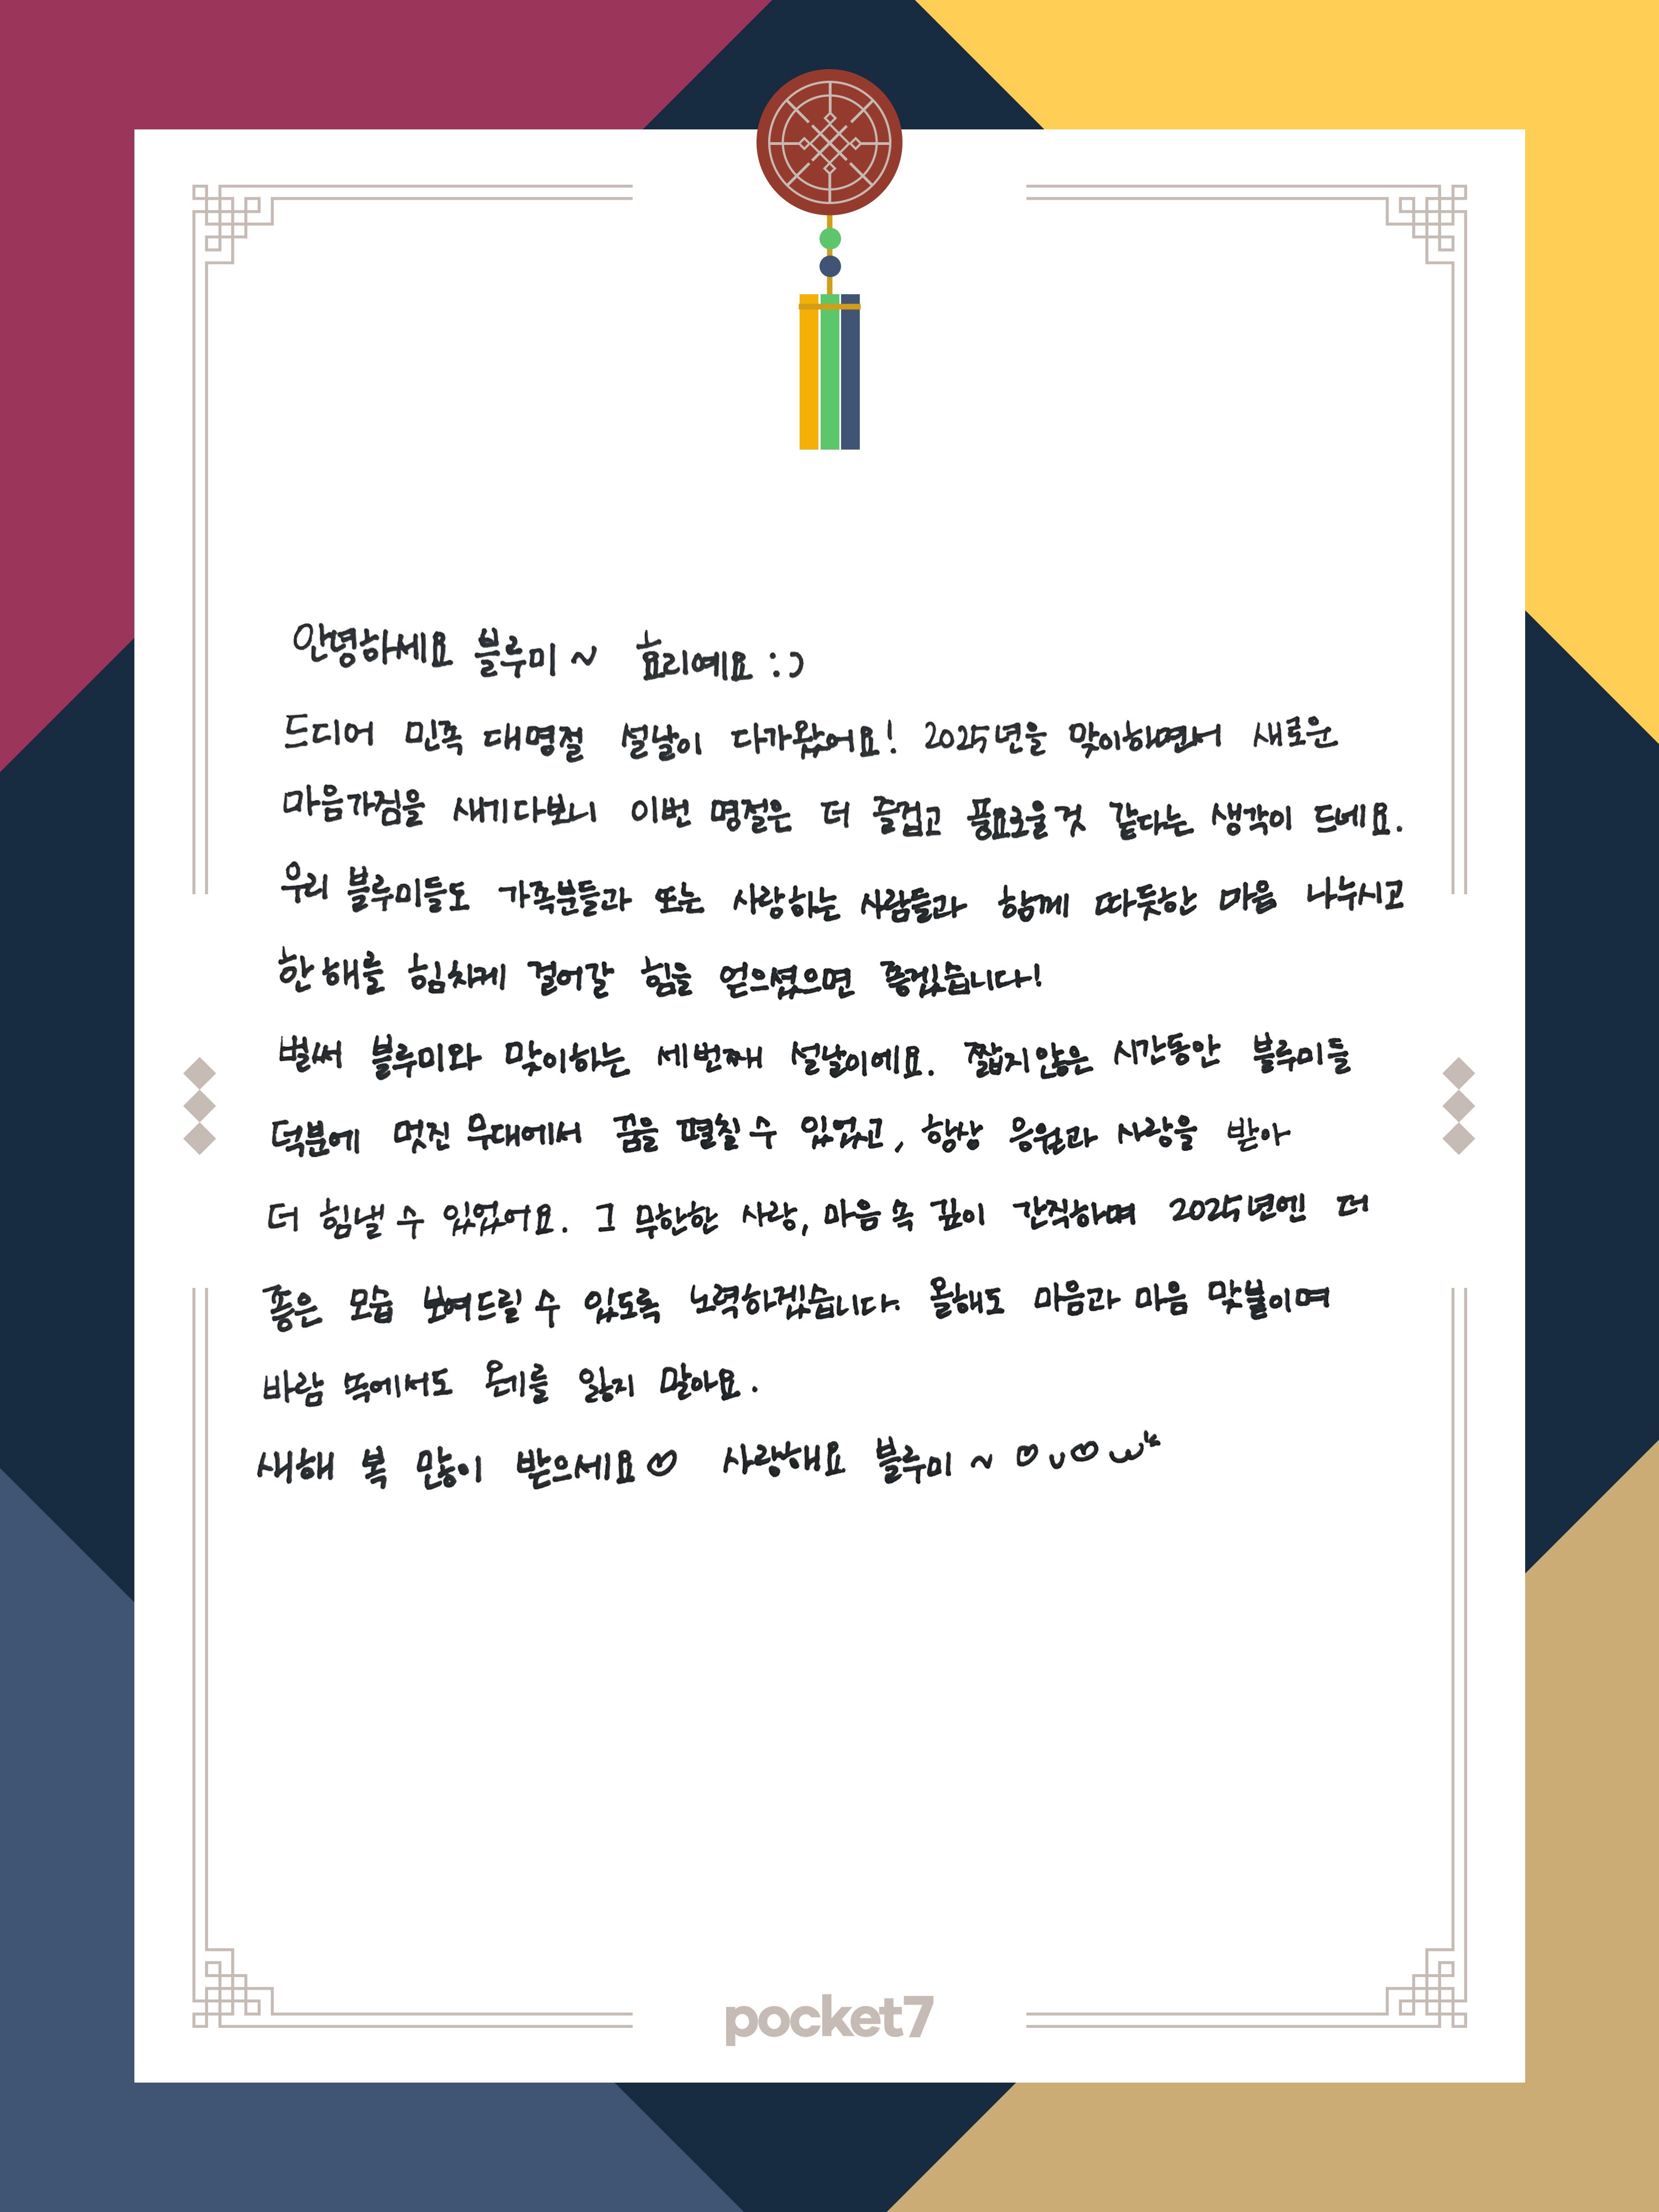 안녕하세요 블루미 ~ 효리예요 :)
드디어 민족 대명절 설날이 다가왔어요! 2025년을 맞이하면서 새로운
마음가짐을 새기다보니 이번 명절은 더 즐겁고 풍요로울것 같다는 생각이 드네요.
우리 블루미들도 가족분들과 또는 사랑하는 사람들과 함께 따듯한 마음 나누시고
한 해를 힘차게 걸어갈 힘을 얻으셨으면 좋겠습니다!
벌써 블루미와 맞이하는 세번째 설날이에요. 짧지않은 시간동안 블루미들
덕분에 멋진 무대에서 꿈을 펼칠 수 있었고, 항상 응원과 사랑을 받아
더 힘낼 수 있었어요. 그 무한한 사랑, 마음 속 깊이 간직하며 2025년엔 더
좋은 모습 보여드릴 수 있도록 노력하겠습니다. 올해도 마음과 마음 맞붙이며
바람 속에서도 온기를 잃지 말아요.
새해 복 많이 받으세요♡ 사랑해요 블루미 ~ ♡ᴗ♡
pocket7